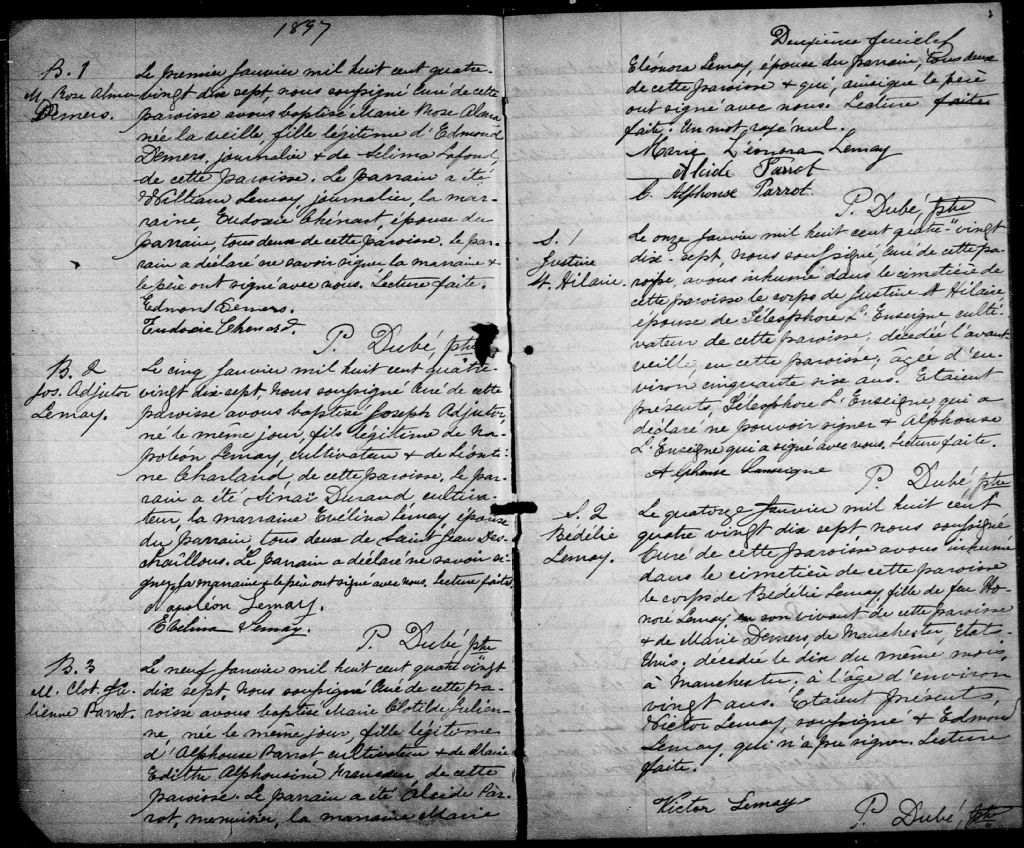 1897
B. 1
M. Rose Alma
Demers.
Le premier Janvier mil huit cent quatre-
vingt dix sept, nous soussigné Curé de cette
paroisse avons baptisé Marie Rose Alma
née la veille, fille légitime d'Edmond
Demers, journalier & de Sélima Lafond,
de cette paroisse. Le parrain a été
William Lemay, journalier, la mar-
raine, Eudoxie Chénart, épouse du
parrain, tous deux de cette paroisse. Le par-
rain a déclaré ne savoir signer la marraine &
le père ont signé avec nous. Lecture faite.
Edmond Demers.
Eudoxie Chenard
P. Dubé, ptre
B. 2
Jos. Adjutor
Lemay.
Le cinq Janvier mil huit cent quatre-
vingt dix-sept, nous soussigné Curé de cette
paroisse avons baptisé Joseph Adjutor,
né le même jour, fils légitime de Na-
poléon Lemay, cultivateur & de Léonti-
ne Charland, de cette paroisse. Le par-
rain a été Sinaï Durand, cultiva-
teur, la marraine Evélina Lemay, épouse
du parrain tous deux de Saint Jean Des-
chaillons. Le parrain a déclaré ne savoir si-
gner, la marraine & le père ont signé avec nous. Lecture faite.
Napoléon Lemay.
Evelina Lemay.
P. Dubé, ptre
B. 3
M. Clot. Ju-
lienne Parrot.
Le neuf Janvier mil huit cent quatre vingt
dix sept, nous soussigné Curé de cette pa-
roisse avons baptisé Marie Clotilde Julien-
ne, née le même jour, fille légitime
d'Alphonse Parrot cultivateur & de Marie
Edithe Alphonsine Francoeur, de cette
paroisse. Le parrain a été Alcide Par-
rot, menuisier, la marraine Marie
Deuxième feuillet
Eléonora Lemay, épouse du parrain, tous deux
de cette paroisse & qui, ainsi que le père
ont signé avec nous. Lecture faite
faite. Un mot rayé nul.
Marie L'éonora Lemay
Alcide Parrot
C. Alphonse Parrot.
P. Dubé, ptre
S. 1
Justine
St. Hilaire.
Le onze Janvier mil huit cent quatre-vingt
dix-sept, nous soussigné, Curé de cette pa-
roisse, avons inhumé dans le cimetière de
cette paroisse le corps de Justine St Hilaire,
épouse de Télesphore L'Enseigne culti-
vateur de cette paroisse, décédée l'avant
veille, en cette paroisse, agée d'en-
viron cinquante six ans. Etaient
présents, Télesphore L'Enseigne qui a
déclaré ne pouvoir signer & Alphonse
L'Enseigne qui a signé avec nous, Lecture faite.
Alphonse Lanseigne
P. Dubé, ptre
S. 2
Bédélie
Lemay.
Le quatorze Janvier mil huit cent
quatre vingt dix sept nous soussigné
Curé de cette paroisse avons inhumé
dans le cimetière de cette paroisse
le corps de Bédélie Lemay, fille de feu Ho-
noré Lemay, en son vivant de cette paroisse
& de Marie Demers de Manchester, Etat-
Unis, décédée le dix du même mois,
à Manchester, à l'âge d'environ
vingt ans. Etaient présents,
Victor Lemay, soussigné & Edmond
Lemay, qui n'a pu signer. Lecture
faite.
Victor Lemay
P. Dubé, ptre